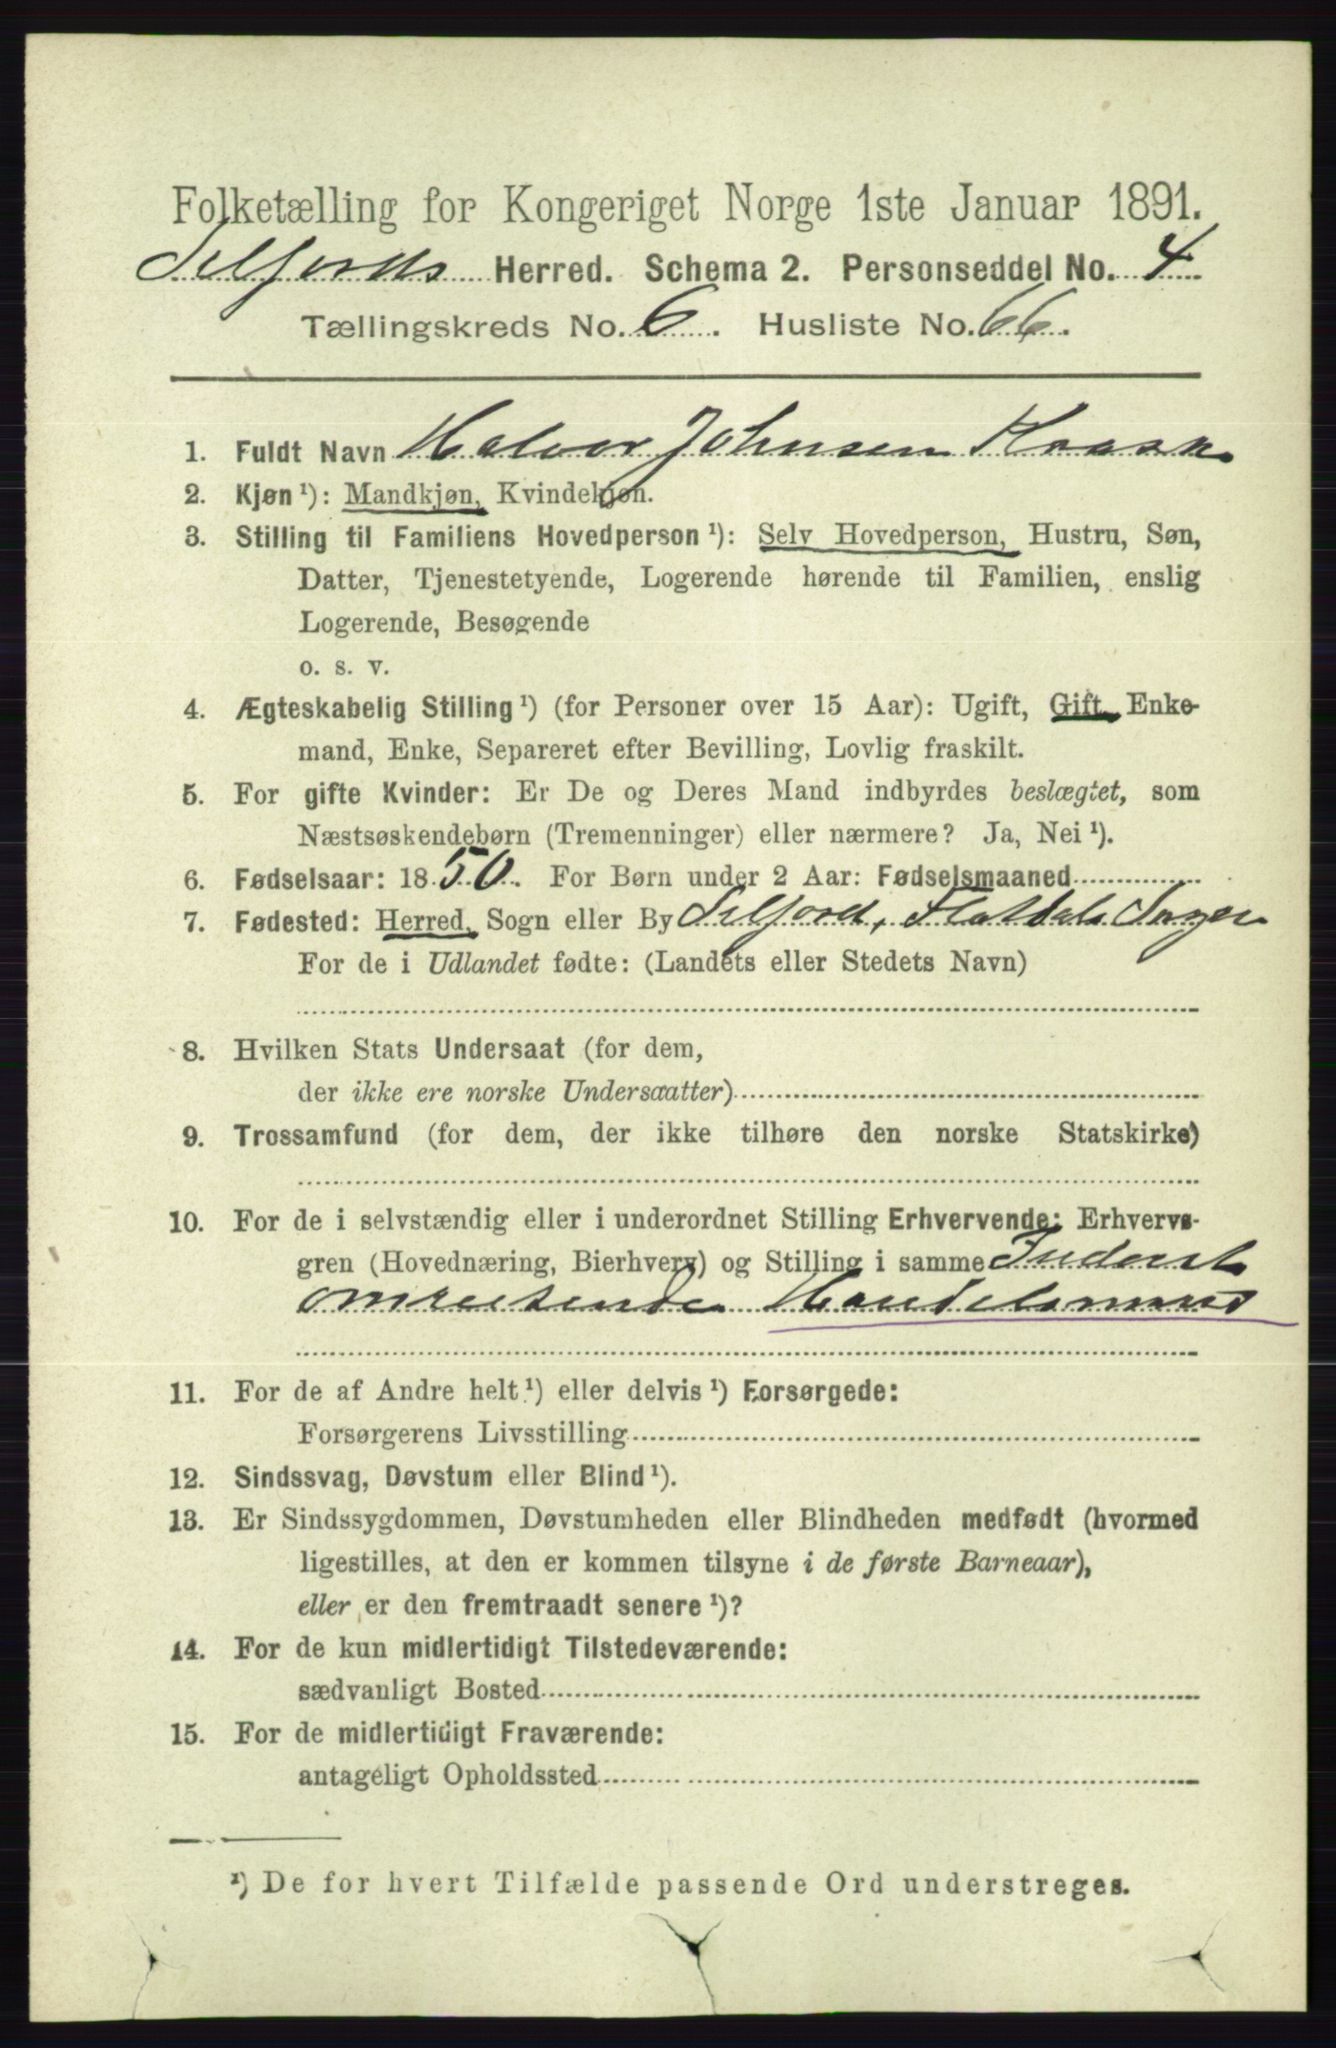 Folketælling for Kongeriget Norge 1ste Januar 1891.
Selfjords Herred. Schema 2. Personseddel No. 4
Tællingskreds No. 6. Husliste No. 66.
1. Fuldt Navn Halvor Johnsen
2. Kjøn ¹): Mandkjøn, Kvindekjøn.
3. Stilling til Familiens Hovedperson ¹): Selv Hovedperson, Hustru, Søn,
Datter, Tjenestetyende, Logerende hørende til Familien, enslig
Logerende, Besøgende
o. s. v.
4. Ægteskabelig Stilling ¹) (for Personer over 15 Aar): Ugift, Gift, Enke-
mand, Enke, Separeret efter Bevilling, Lovlig fraskilt.
5. For gifte Kvinder: Er De og Deres Mand indbyrdes beslægtet, som
Næstsøskendebørn (Tremenninger) eller nærmere? Ja, Nei ¹).
6. Fødselsaar: 1850. For Børn under 2 Aar: Fødselsmaaned
7. Fødested: Herred, Sogn eller By Selfjord, Flatdals Sogn
For de i Udlandet fødte: (Landets eller Stedets Navn)
8. Hvilken Stats Undersaat (for dem,
der ikke ere norske Undersaatter)
9. Trossamfund (for dem, der ikke tilhøre den norske Statskirke)
10. For de i selvstændig eller i underordnet Stilling Erhvervende: Erhvervs-
gren (Hovednæring, Bierhverv) og Stilling i samme Inderst
omreisende Handelsmand
11. For de af Andre helt ¹) eller delvis ¹) Forsørgede:
Forsørgerens Livsstilling
12. Sindssvag, Døvstum eller Blind ¹).
13. Er Sindssygdommen, Døvstumheden eller Blindheden medfødt (hvormed
ligestilles, at den er kommen tilsyne i de første Barneaar),
eller er den fremtraadt senere ¹)?
14. For de kun midlertidigt Tilstedeværende:
sædvanligt Bosted
15. For de midlertidigt Fraværende:
antageligt Opholdssted
¹) De for hvert Tilfælde passende Ord understreges.